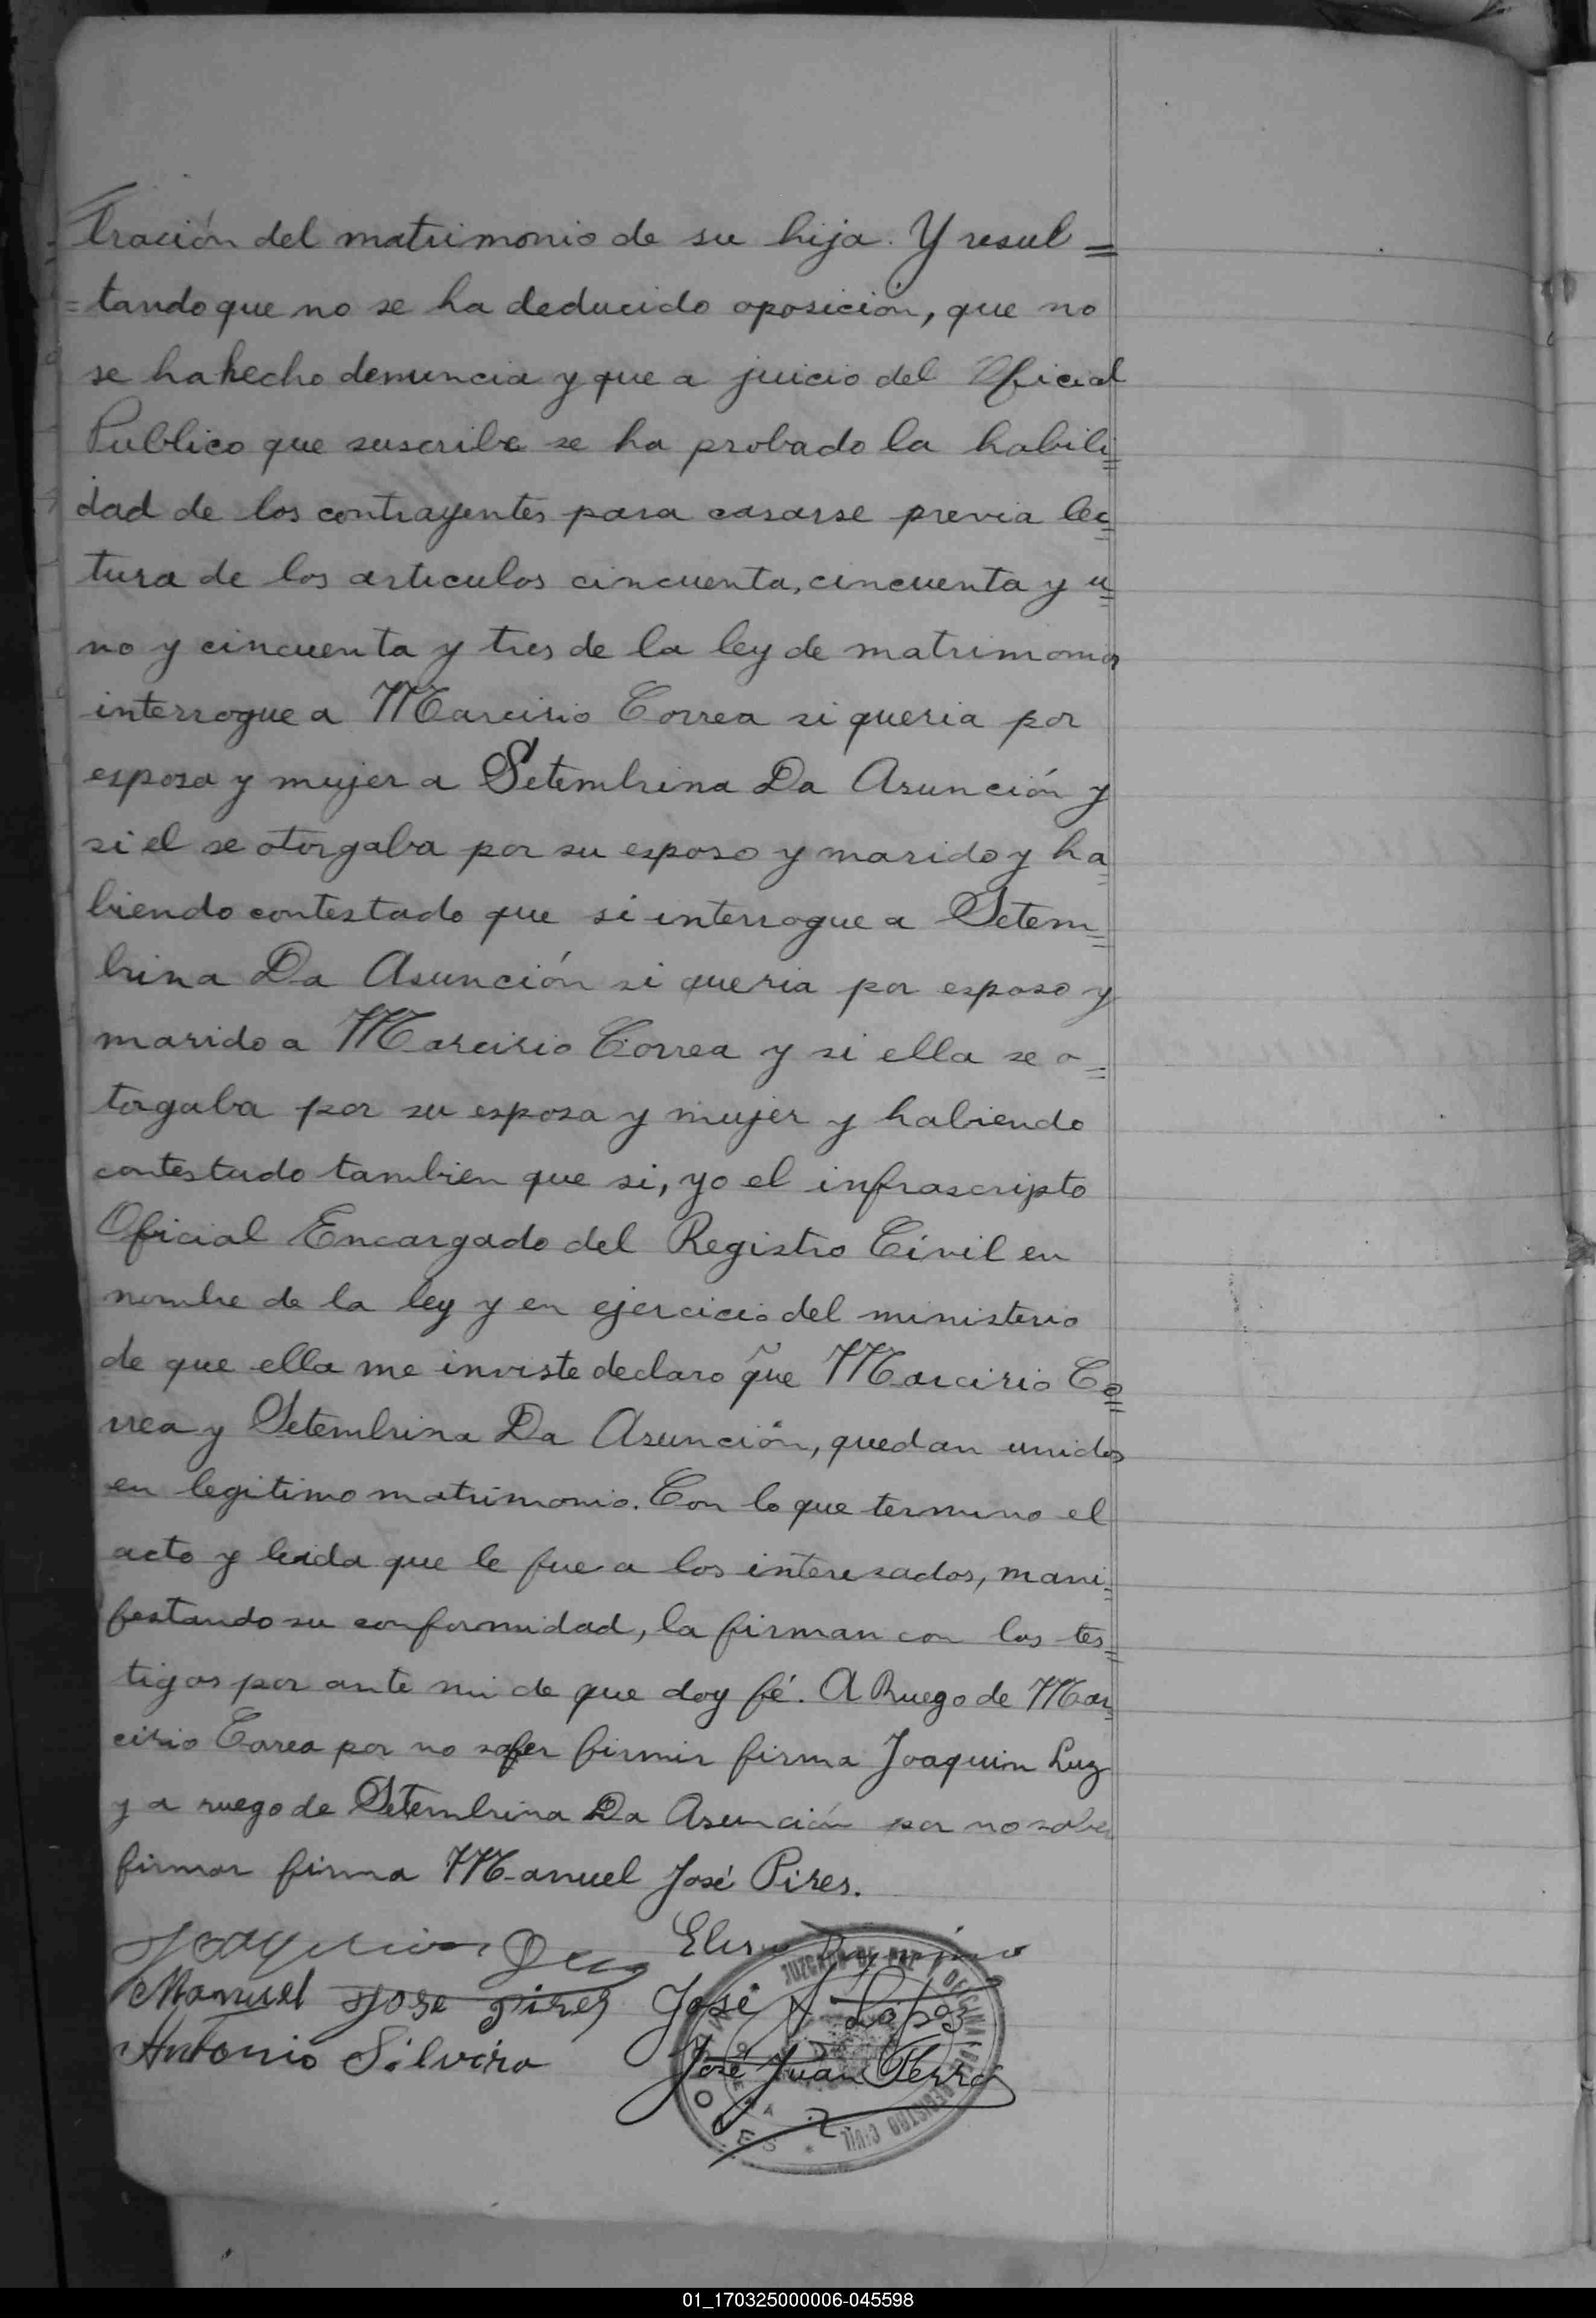 tración del matrimonio de su hija. Y resul=
=tando que no se ha deducido oposición, que no
se ha hecho denuncia y que a juicio del Oficial
Publico que suscribe se ha probado la habili=
dad de los contrayentes para casarse previa lec=
tura de los articulos cincuenta, cincuenta y u=
no y cincuenta y tres de la ley de matrimonio
interrogue a Marcirio Correa si queria por
esposa y mujer a Setembrina Da Asunción y
si el se otorgaba por su esposo y marido y ha=
biendo contestado que si interrogue a Setem=
brina Da Asunción si queria por esposo y
marido a Marcirio Correa y si ella se o=
torgaba por su esposa y mujer y habiendo
contestado tambien que si, yo el infrascripto
Oficial Encargado del Registro Civil en
nombre de la ley y en ejercicio del ministerio
de que ella me inviste declaro que Marcirio Co=
rrea y Setembrina Da Asunción, quedan unidos
en legitimo matrimonio. Con lo que termino el
acto y leida que le fue a los interesados, mani=
festando su conformidad, la firman con los tes=
tigos por ante mi de que doy fé. A Ruego de Mar=
cirio Correa por no saber firmir firma Joaquin Luz
y a ruego de Setembrina Da Asunción por no saber
firmar firma Manuel José Pires.
Joaquin
Manuel Jose Pires José López
Antonio Silveira José Juan
JUZGADO DE PAZ Y OFICINA DEL REGISTRO CIVIL
01_170325000006-045598